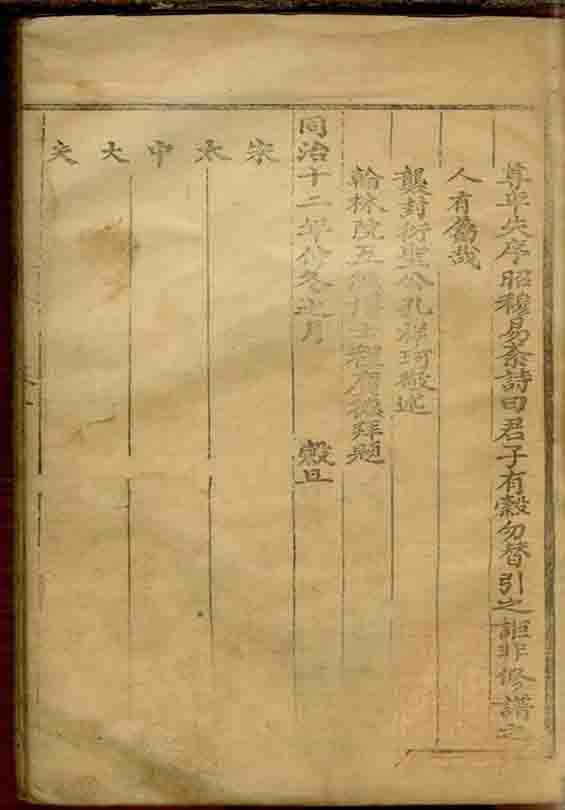 尊卑失序昭穆易紊詩曰君子有穀勿替引之詎非修譜之
人有為哉
襲封衍聖公孔祥珂敬述
翰林院五經博士程 拜題
同治十二年 冬 月 穀旦
宋太中大夫